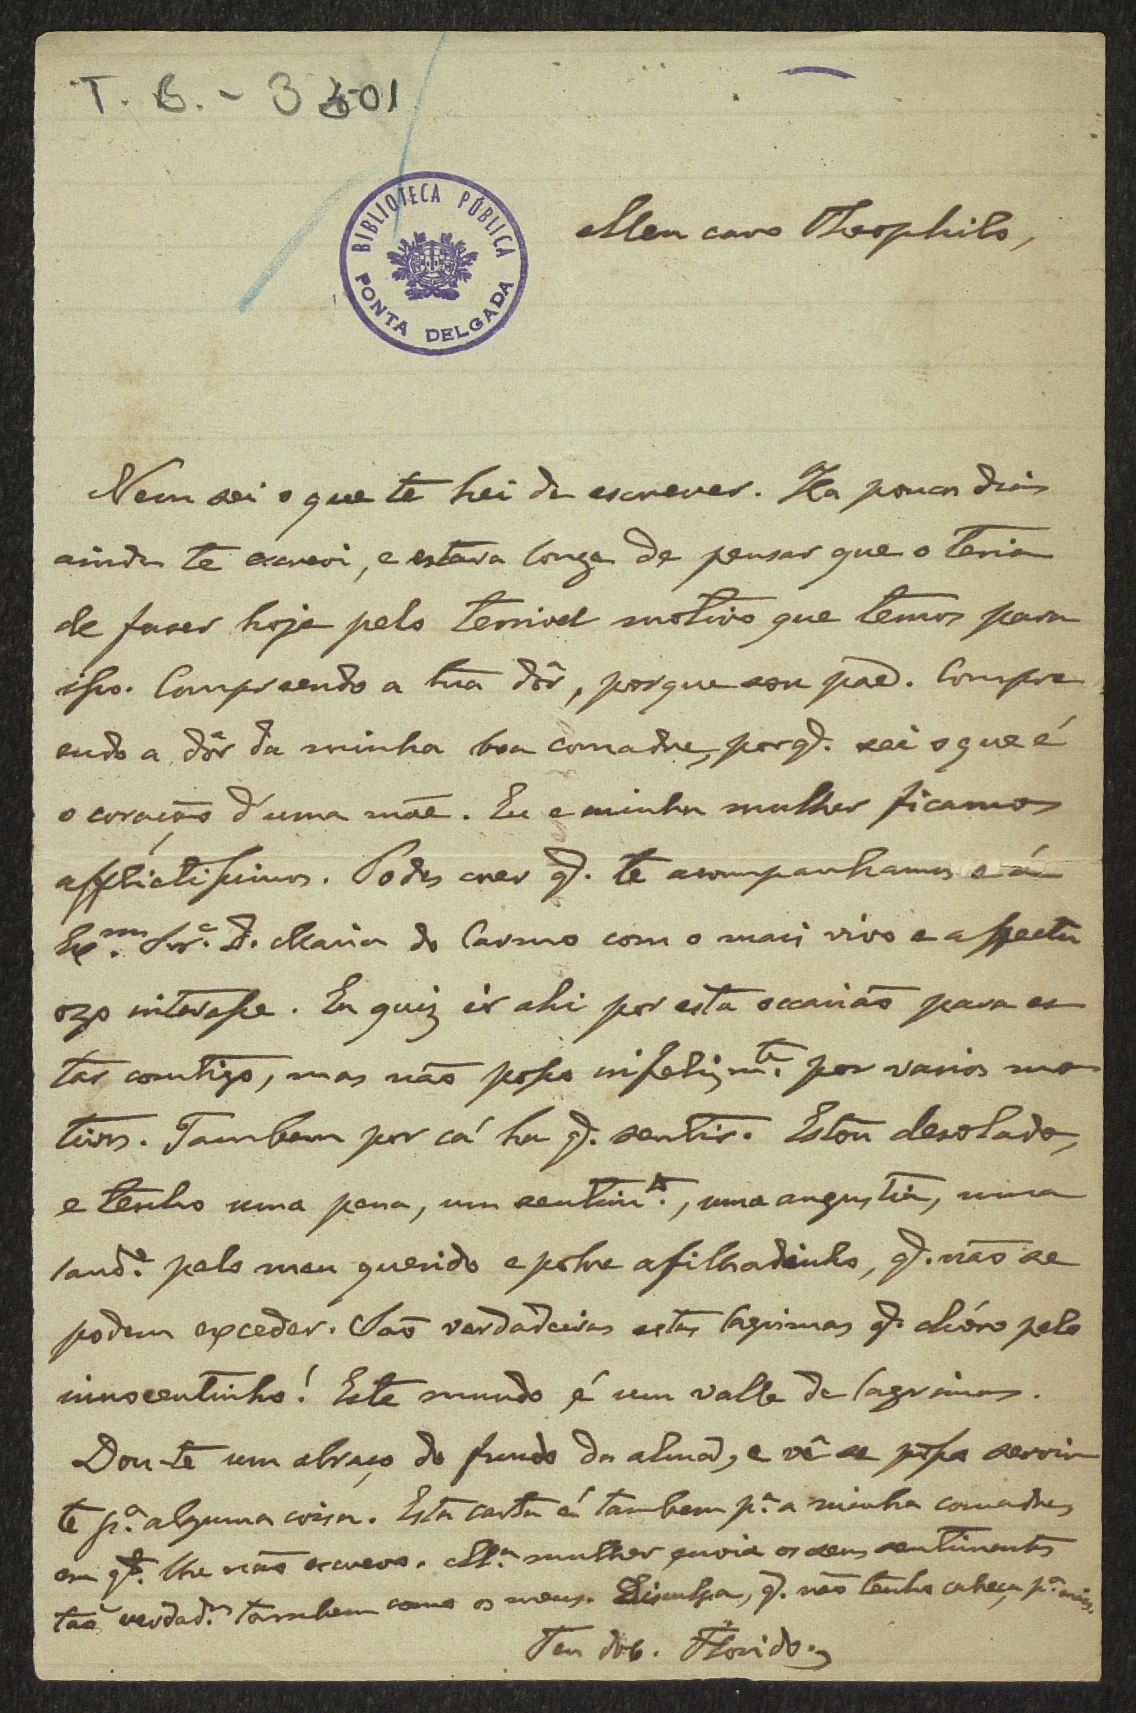 T. B. - 3301
BIBLIOTECA PÚBLICA
PONTA DELGADA
Meu caro Theophilo,
Nem sei o que te hei de escrever. Ha poucos dias
ainda te escrevi, e estava longe de pensar que o teria
de fazer hoje pelo terrivel motivo que temos para
isso. Comprendo a tua dôr, porque sou pae. Compre
endo a dôr da minha boa comadre, porq. sei o que é
o coração d'uma mãe. Eu e minha mulher ficamos
afflictissimos. Podes crer q. te acompanhamos e á
Ex.ma Snr.a D. Maria do Carmo com o mais vivo e affectu
ozo interesse. Eu quiz ir ahi por esta occasião para es
tar comtigo, mas não posso infelizm.te por varios mo
tivos. Tambem por cá ha q. sentir. Estou desolado,
e tenho uma pena, um sentim.to, uma angustia, uma
saud.e pelo meu querido e pobre afilhadinho, q. não se
podem exceder. São verdadeiras estas lagrimas q. chóro pelo
innocentinho! Este mundo é um valle de lagrimas.
Dou-te um abraço do fundo da alma, e vê se posso servir
te p.a alguma coisa. Esta carta é tambem p.a a minha comadre,
em q. lhe não escrevo. M.a mulher envia os seus sentimentos
tão verdad.os tambem como os meus. Disculpa, q. não tenho cabeça p.a mais.
Teu do c. Florido